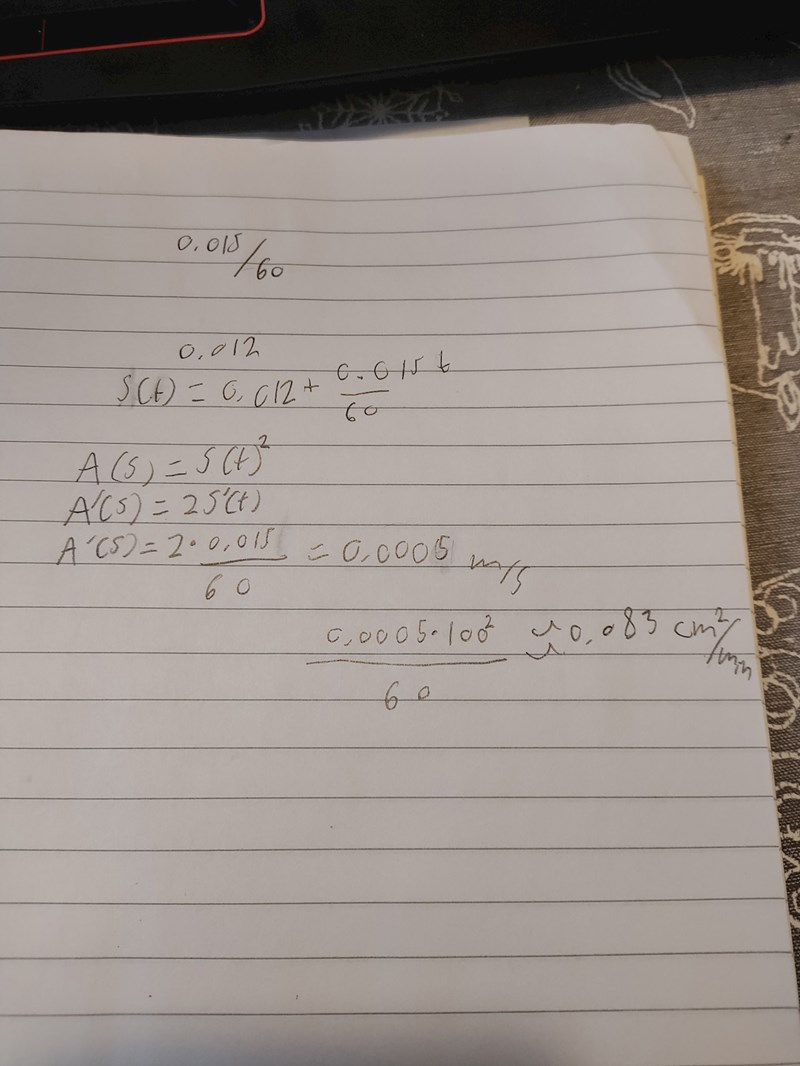 0.015/60
0.012
S(t) = 0.012 + 0.015t/60
A(s) = S(t)²
A'(s) = 2S'(t)
A'(s) = 2·0.015/60 = 0.0005 m/s
0.0005·100²/60 ≈ 0.083 cm²/min